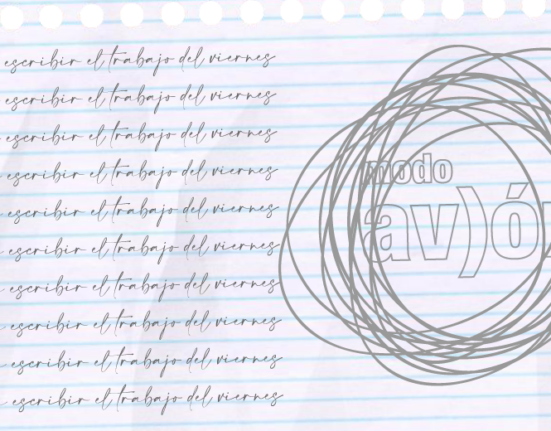 escribir el trabajo del viernes
escribir el trabajo del viernes
escribir el trabajo del viernes
escribir el trabajo del viernes
escribir el trabajo del viernes
escribir el trabajo del viernes
escribir el trabajo del viernes
escribir el trabajo del viernes
escribir el trabajo del viernes
escribir el trabajo del viernes
modo
av)ó